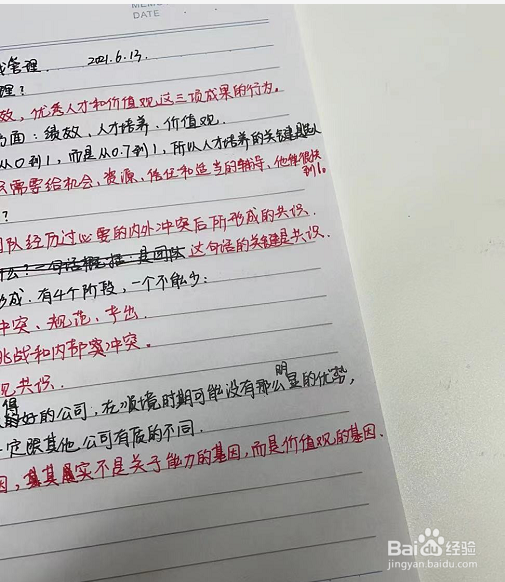 MEMO
DATE
管理. 2021.6.13.
理?
效,优秀人才和价值观这三项成果的行为。
面:绩效、人才培养、价值观.
从0到1,而是从0.7到1,所以人才培养的关键是选人
需要给机会,资源,信任和适当的辅导,他伴很快
到1。
?
团队经历过必要的内外冲突后所形成的共识.
什么?一句话概括:是团体 这句话的关键是共识.
形成.有4个阶段,一个不能少:
冲突、规范、产出.
挑战和内部冲突。
见共识.
得
好的公司,在顺境时期可能没有那么明显的优势,
一定跟其他公司有质的不同.
因,其实不是关于能力的基因,而是价值观的基因、
Baidu经验
jingyan.baidu.com